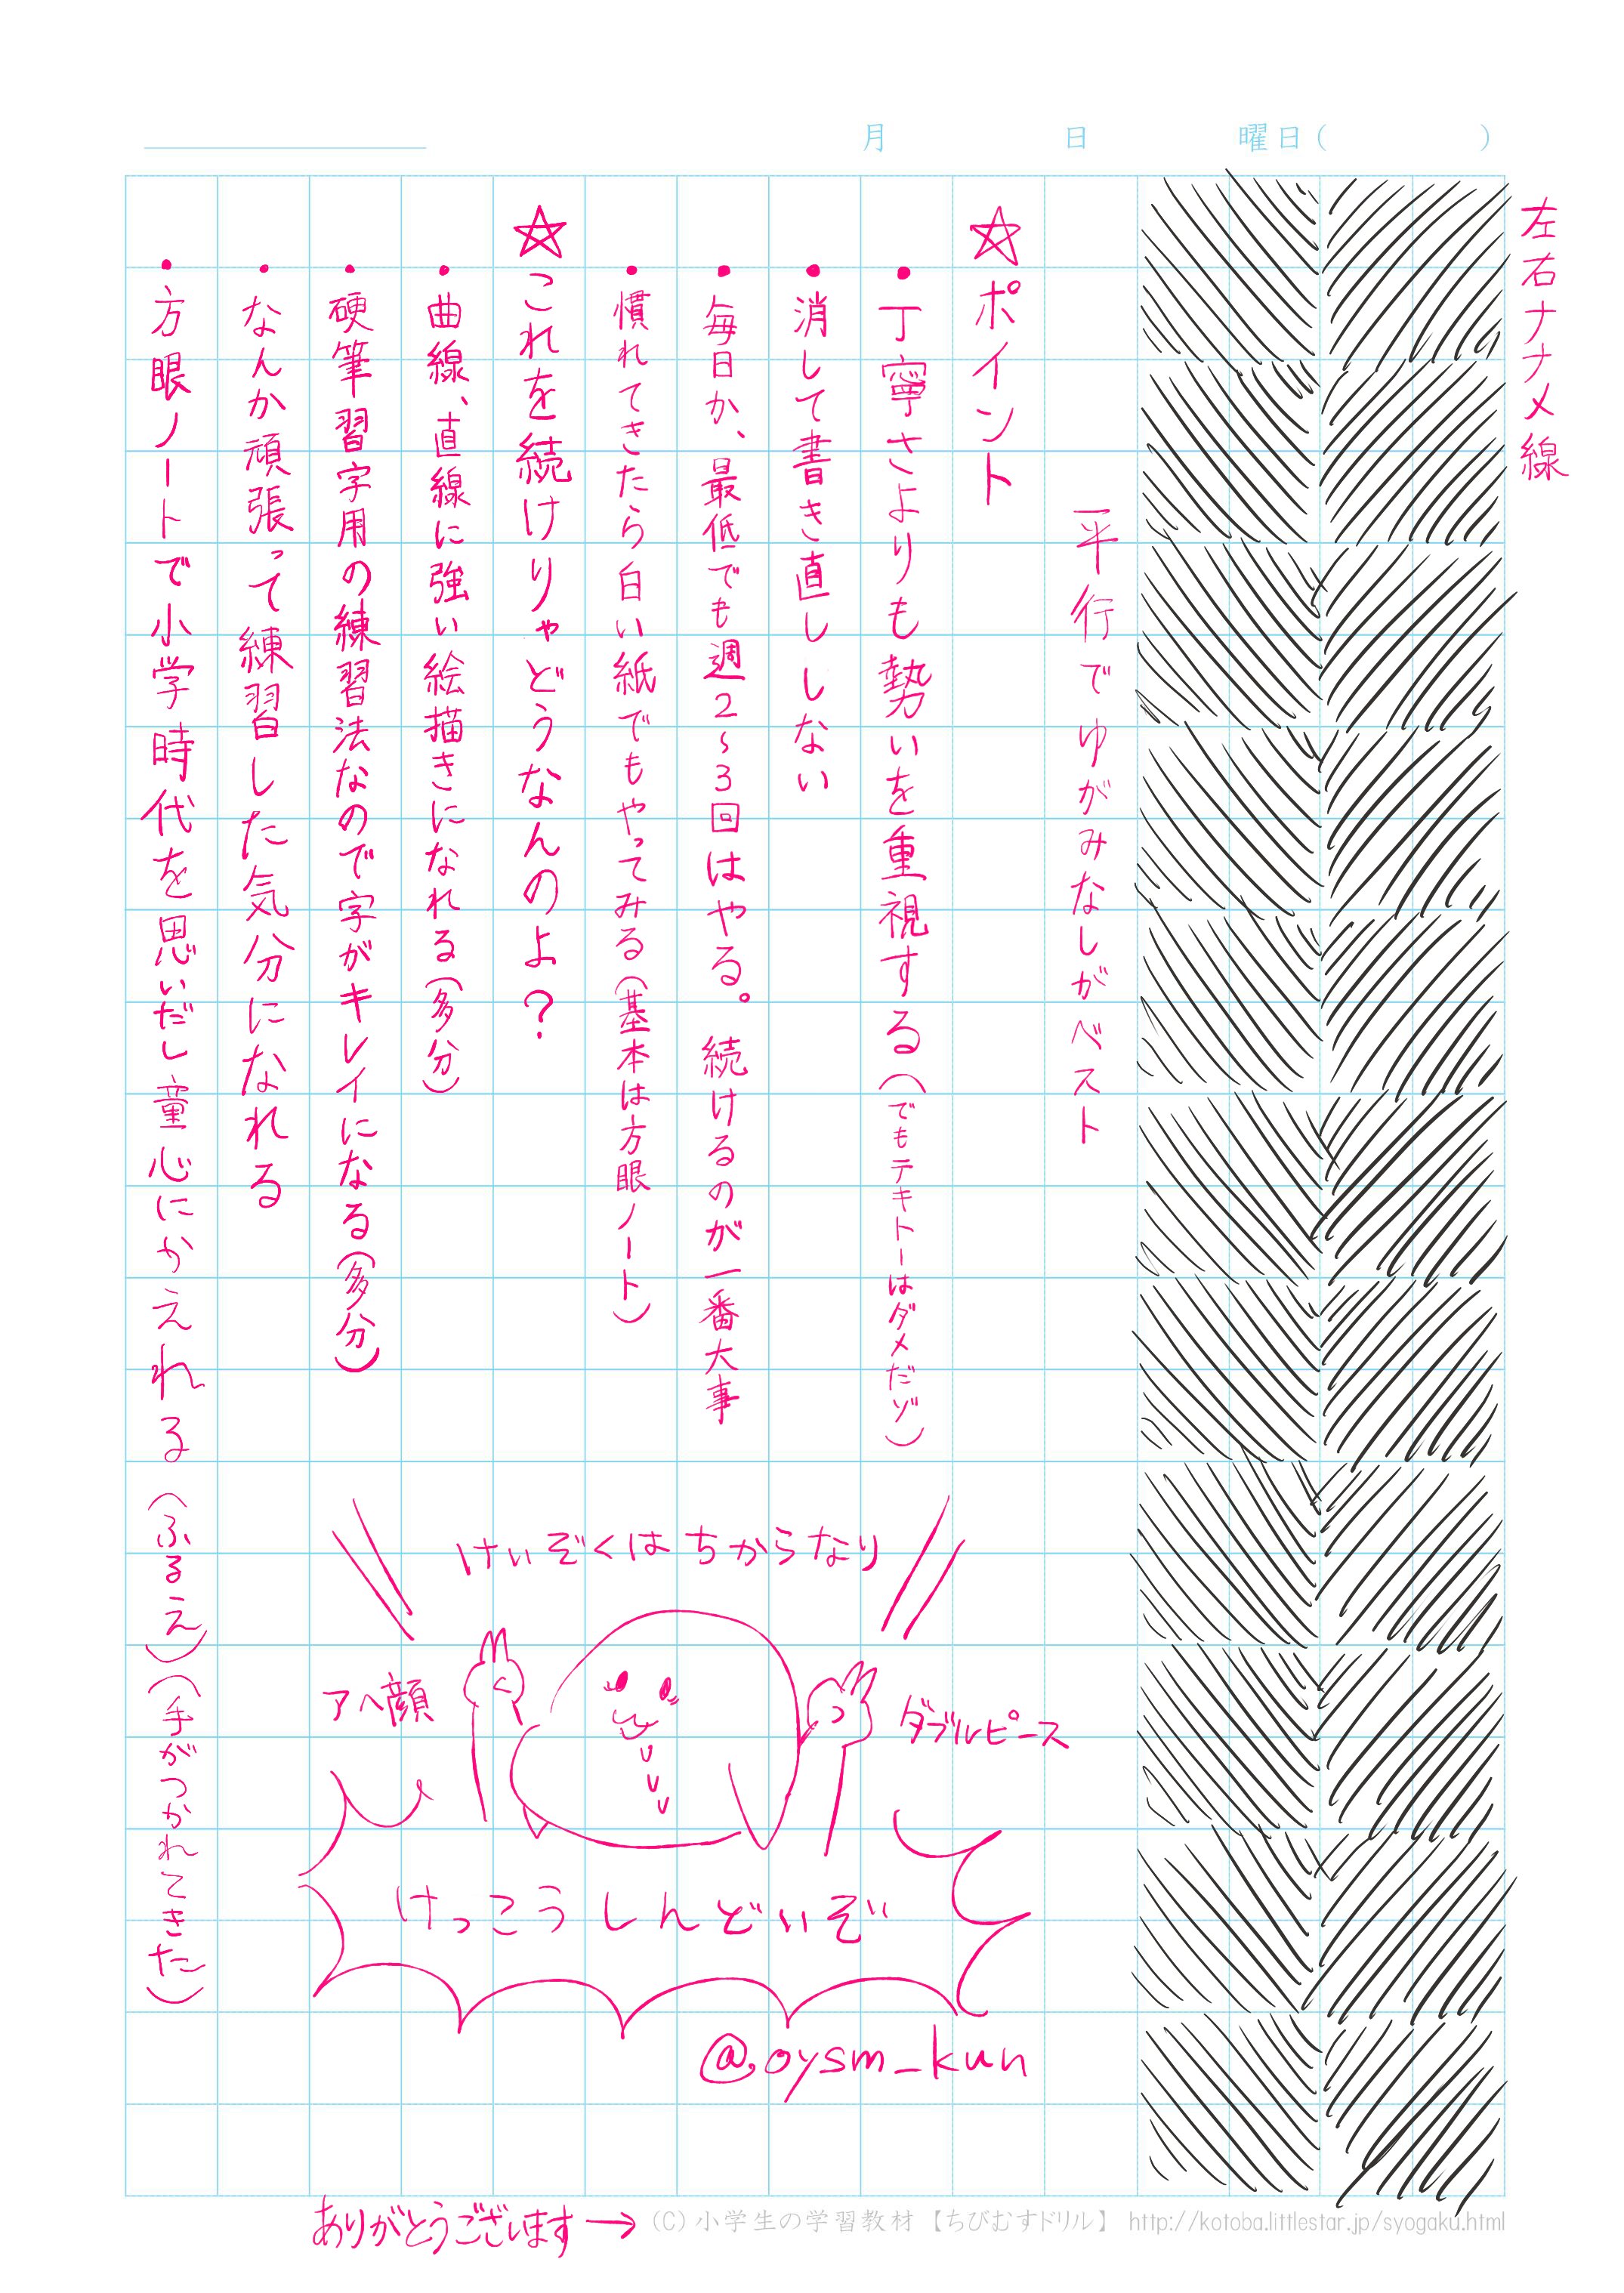 月 日 曜日( )
左右ナナメ線
平行でゆがみなしがベスト
☆ポイント
・丁寧さよりも勢いを重視する(でもテキトーはダメだゾ)
・消して書き直ししない
・毎日か、最低でも週2〜3回はやる。続けるのが一番大事
・慣れてきたら白い紙でもやってみる(基本は方眼ノート)
☆これを続けりゃどうなんのよ?
・曲線、直線に強い絵描きになれる(多分)
・硬筆習字用の練習法なので字がキレイになる(多分)
・なんか頑張って練習した気分になれる
・方眼ノートで小学時代を思いだし童心にかえれる(ふるえ)(手がつかれてきた)
けいぞくはちからなり
アヘ顔
ダブルピース
けっこうしんどいぞ
@oysm_kun
ありがとうございます→
(C)小学生の学習教材【ちびむすドリル】 http://kotoba.littlestar.jp/syogaku.html